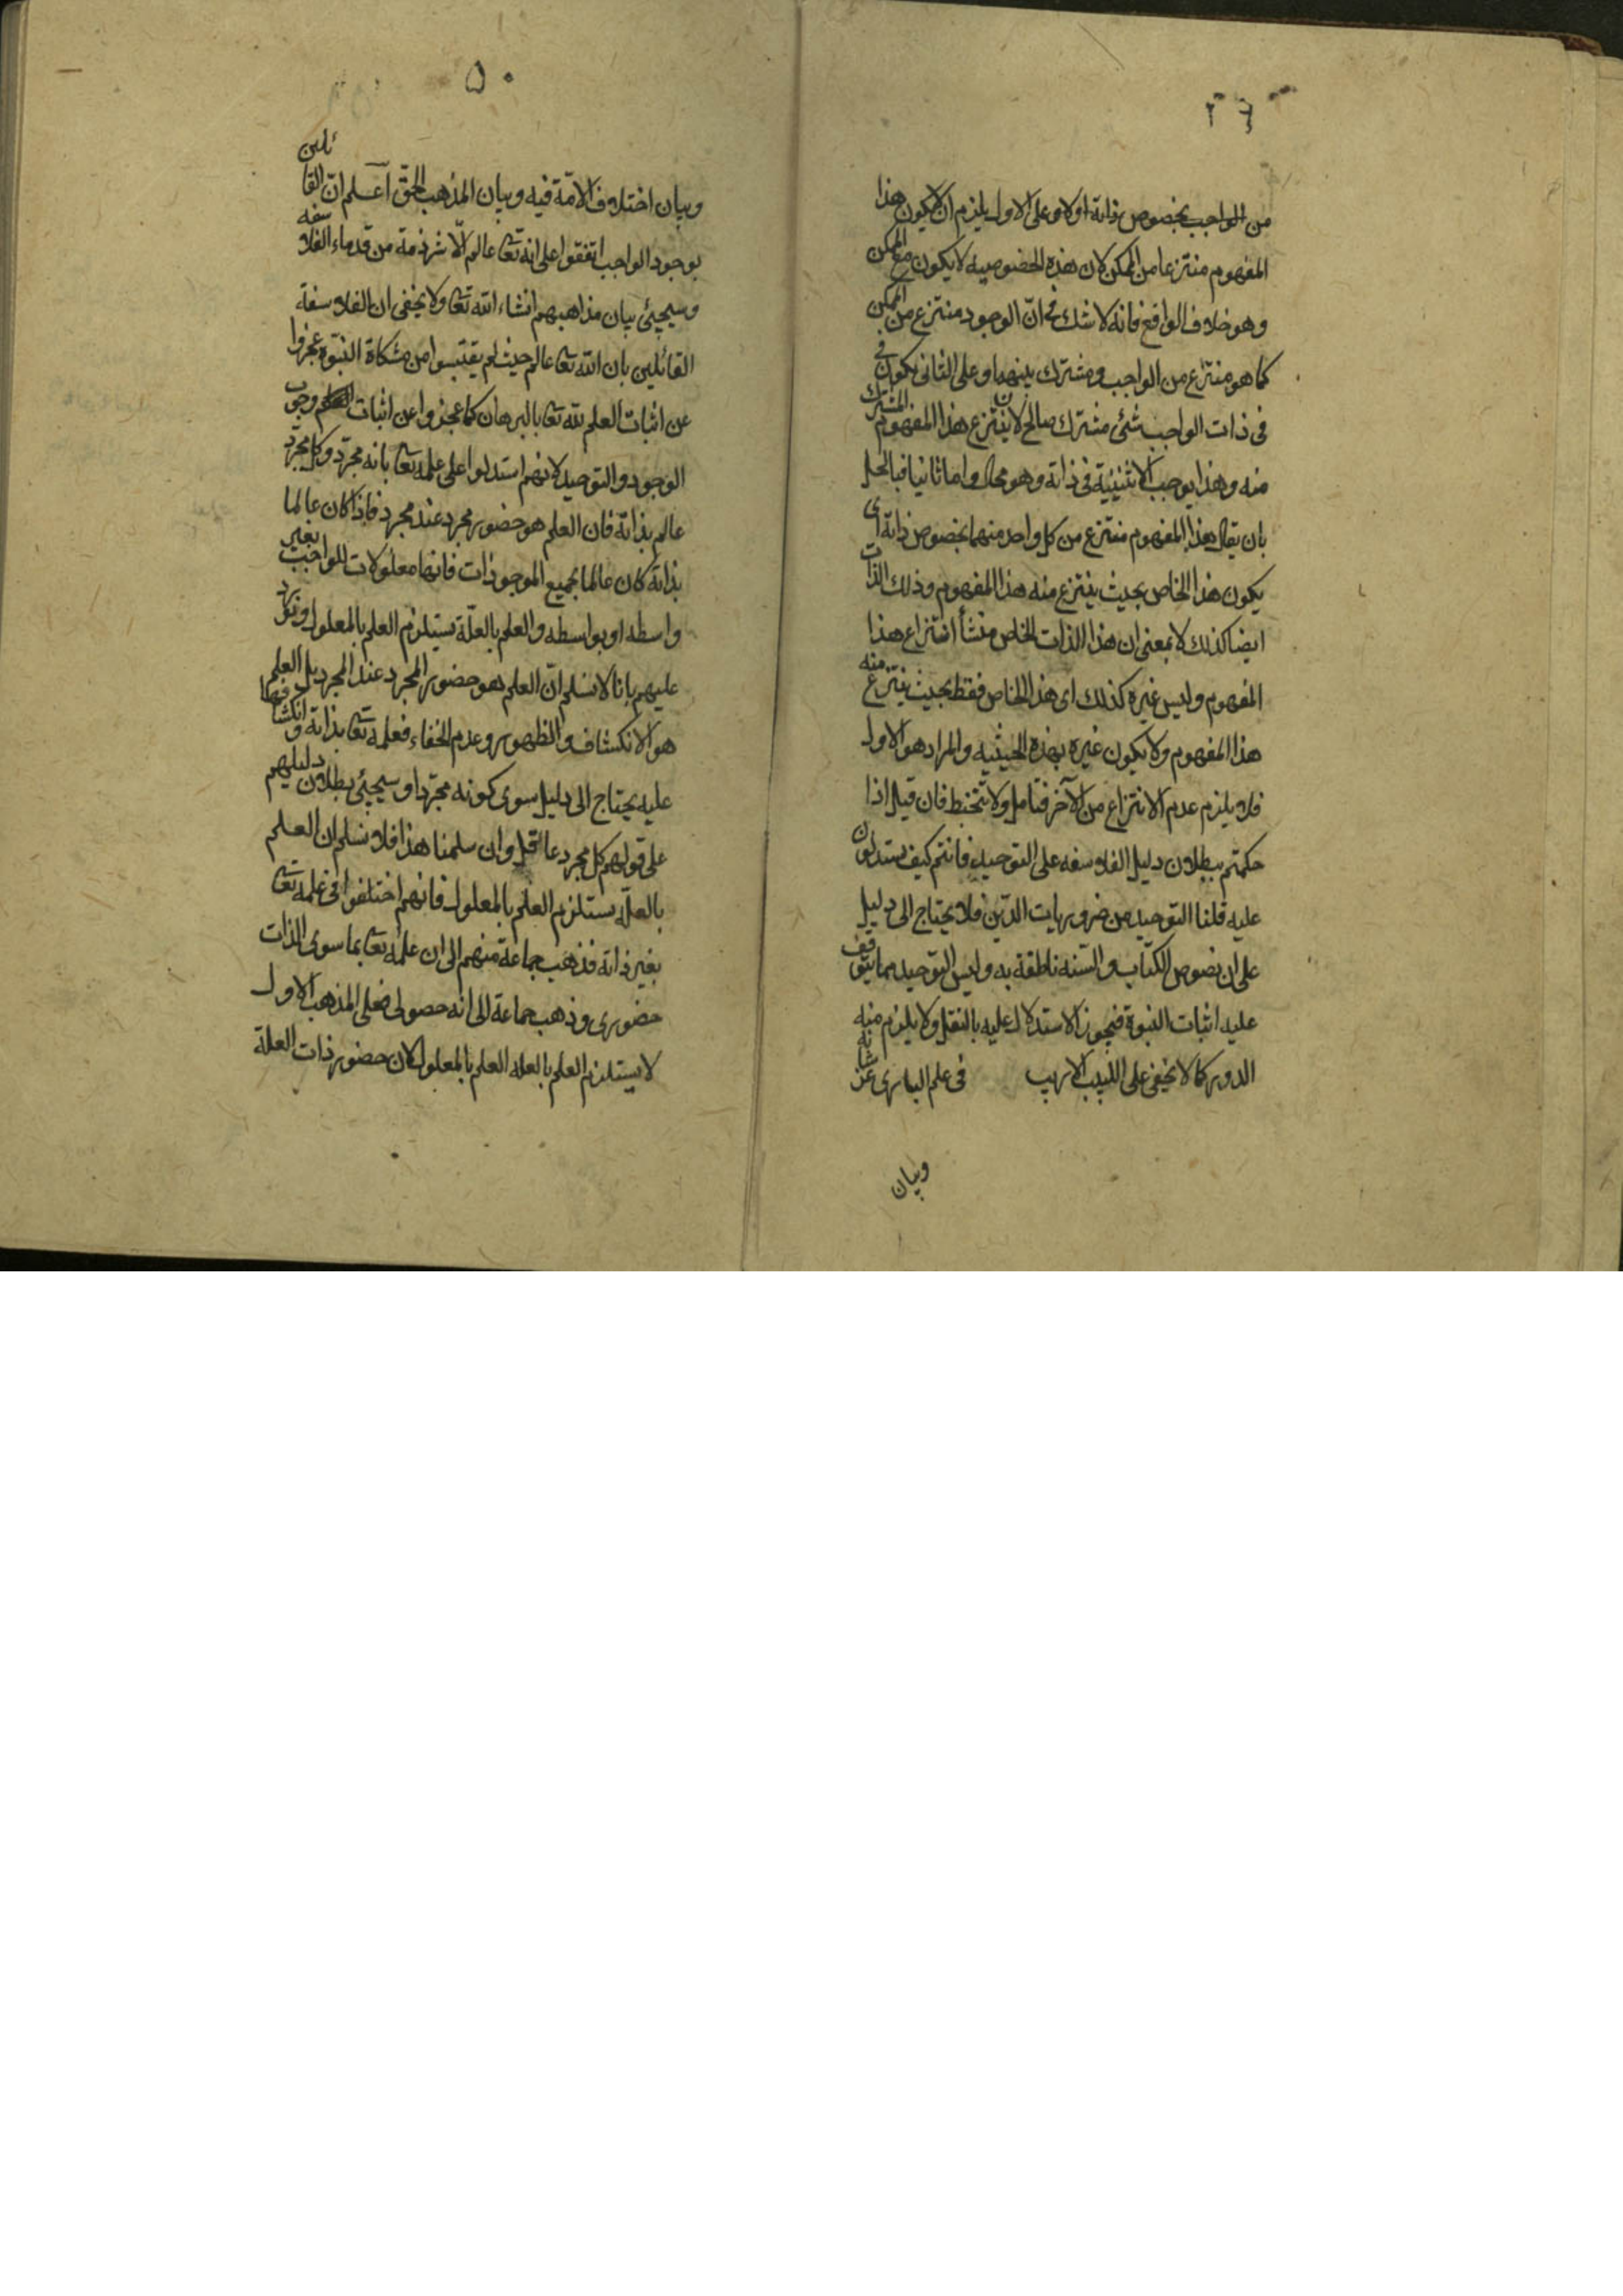 ٢٤
من الواجب بخصوص ذاته اولا وعلى الاول يلزم ان لا يكون هذا
المفهوم منتزعا من الممكن لان هذه الخصوصيه لا يكون مع الممكن
وهو خلاف الواقع فانه لا شك فى انّ الوجود منتزع من الممكن
كما هو منتزع من الواجب ومشترك بينهما وعلى الثانى يكون فى
فى ذات الواجب شئ مشترك صالح لان ينتزع هذا المفهوم المشترك
منه وهذا يوجب الاثنينيّة فى ذاته وهو محال واما ثانيا فبالحل
بان يقال هذا المفهوم منتزع من كل واحد منهما بخصوص ذاته اى
يكون هذا الخاص بحيث ينتزع منه هذا المفهوم وذلك الذات
ايضا كذلك لا بمعنى ان هذا الذات الخاص منشأ انتزاع هذا
المفهوم وليس غيره كذلك اى هذا الخاص فقط بحيث ينتزع منه
هذا المفهوم ولا يكون غيره بهذه الحيثيه والمراد هو الاول
فلا يلزم عدم الانتزاع من الآخر فتامل ولا تتخبط فان قيل اذا
حكمتم ببطلان دليل الفلاسفه على التوحيد فانتم كيف تستدلون
عليه قلنا التوحيد من ضروريات الدّين فلا يحتاج الى دليل
على ان نصوص الكتاب والسّنه ناطقة به وليس التوحيد مما يتوقف
عليه اثبات النبوة فيجوز الاستدلال عليه بالنقل ولا يلزم منه
الدور كما لا يخفى على اللبيب الاريب فى علم البارى عز شانه
وبيان
٥٠
وبيان اختلاف الامّة فيه وبيان المذهب الحقّ اعلم انّ القائلين
بوجود الواجب اتفقوا على انه تعا عالم الّا شرذمة من قدماء الفلاسفه
وسيجيئ بيان مذاهبهم انشاء الله تعا ولا يخفى ان الفلاسفة
القائلين بان الله تعا عالم حيث لم يقتبسوا من مشكاة النبّوه عجزوا
عن اثبات العلم لله تعا بالبرهان كما عجزوا عن اثبات وجوب
الوجود والتوحيد لانهم استدلوا على علمه تعا بانه مجرّد وكل مجرّد
عالم بذاته فان العلم هو حضور مجرد عند مجرد فاذا كان عالما
بذاته كان عالما بجميع الموجودات فانها معلولات للواجب بغير
واسطه او بواسطه والعلم بالعلّة يستلزم العلم بالمعلول ونورد
عليهم بانا لا نسلم انّ العلم هو حضور المجرد عند المجرد بل العلم
هو الانكشاف والظهور وعدم الخفاء فعلمه تعا بذاته وانكشافها
عليه يحتاج الى دليل سوى كونه مجرّدا وسيجيئ بطلان دليلهم
على قولهم كل مجرد عاقل وان سلمنا هذا فلا نسلم ان العلم
بالعلّه يستلزم العلم بالمعلول فانهم اختلفوا فى علمه تعا
بغير ذاته فذهب جماعة منهم الى ان علمه تعا بما سوى الذات
حضورى وذهب جماعة الى انه حصولى فعلى المذهب الاول
لا يستلزم العلم بالعله العلم بالمعلول لان حضور ذات العلة